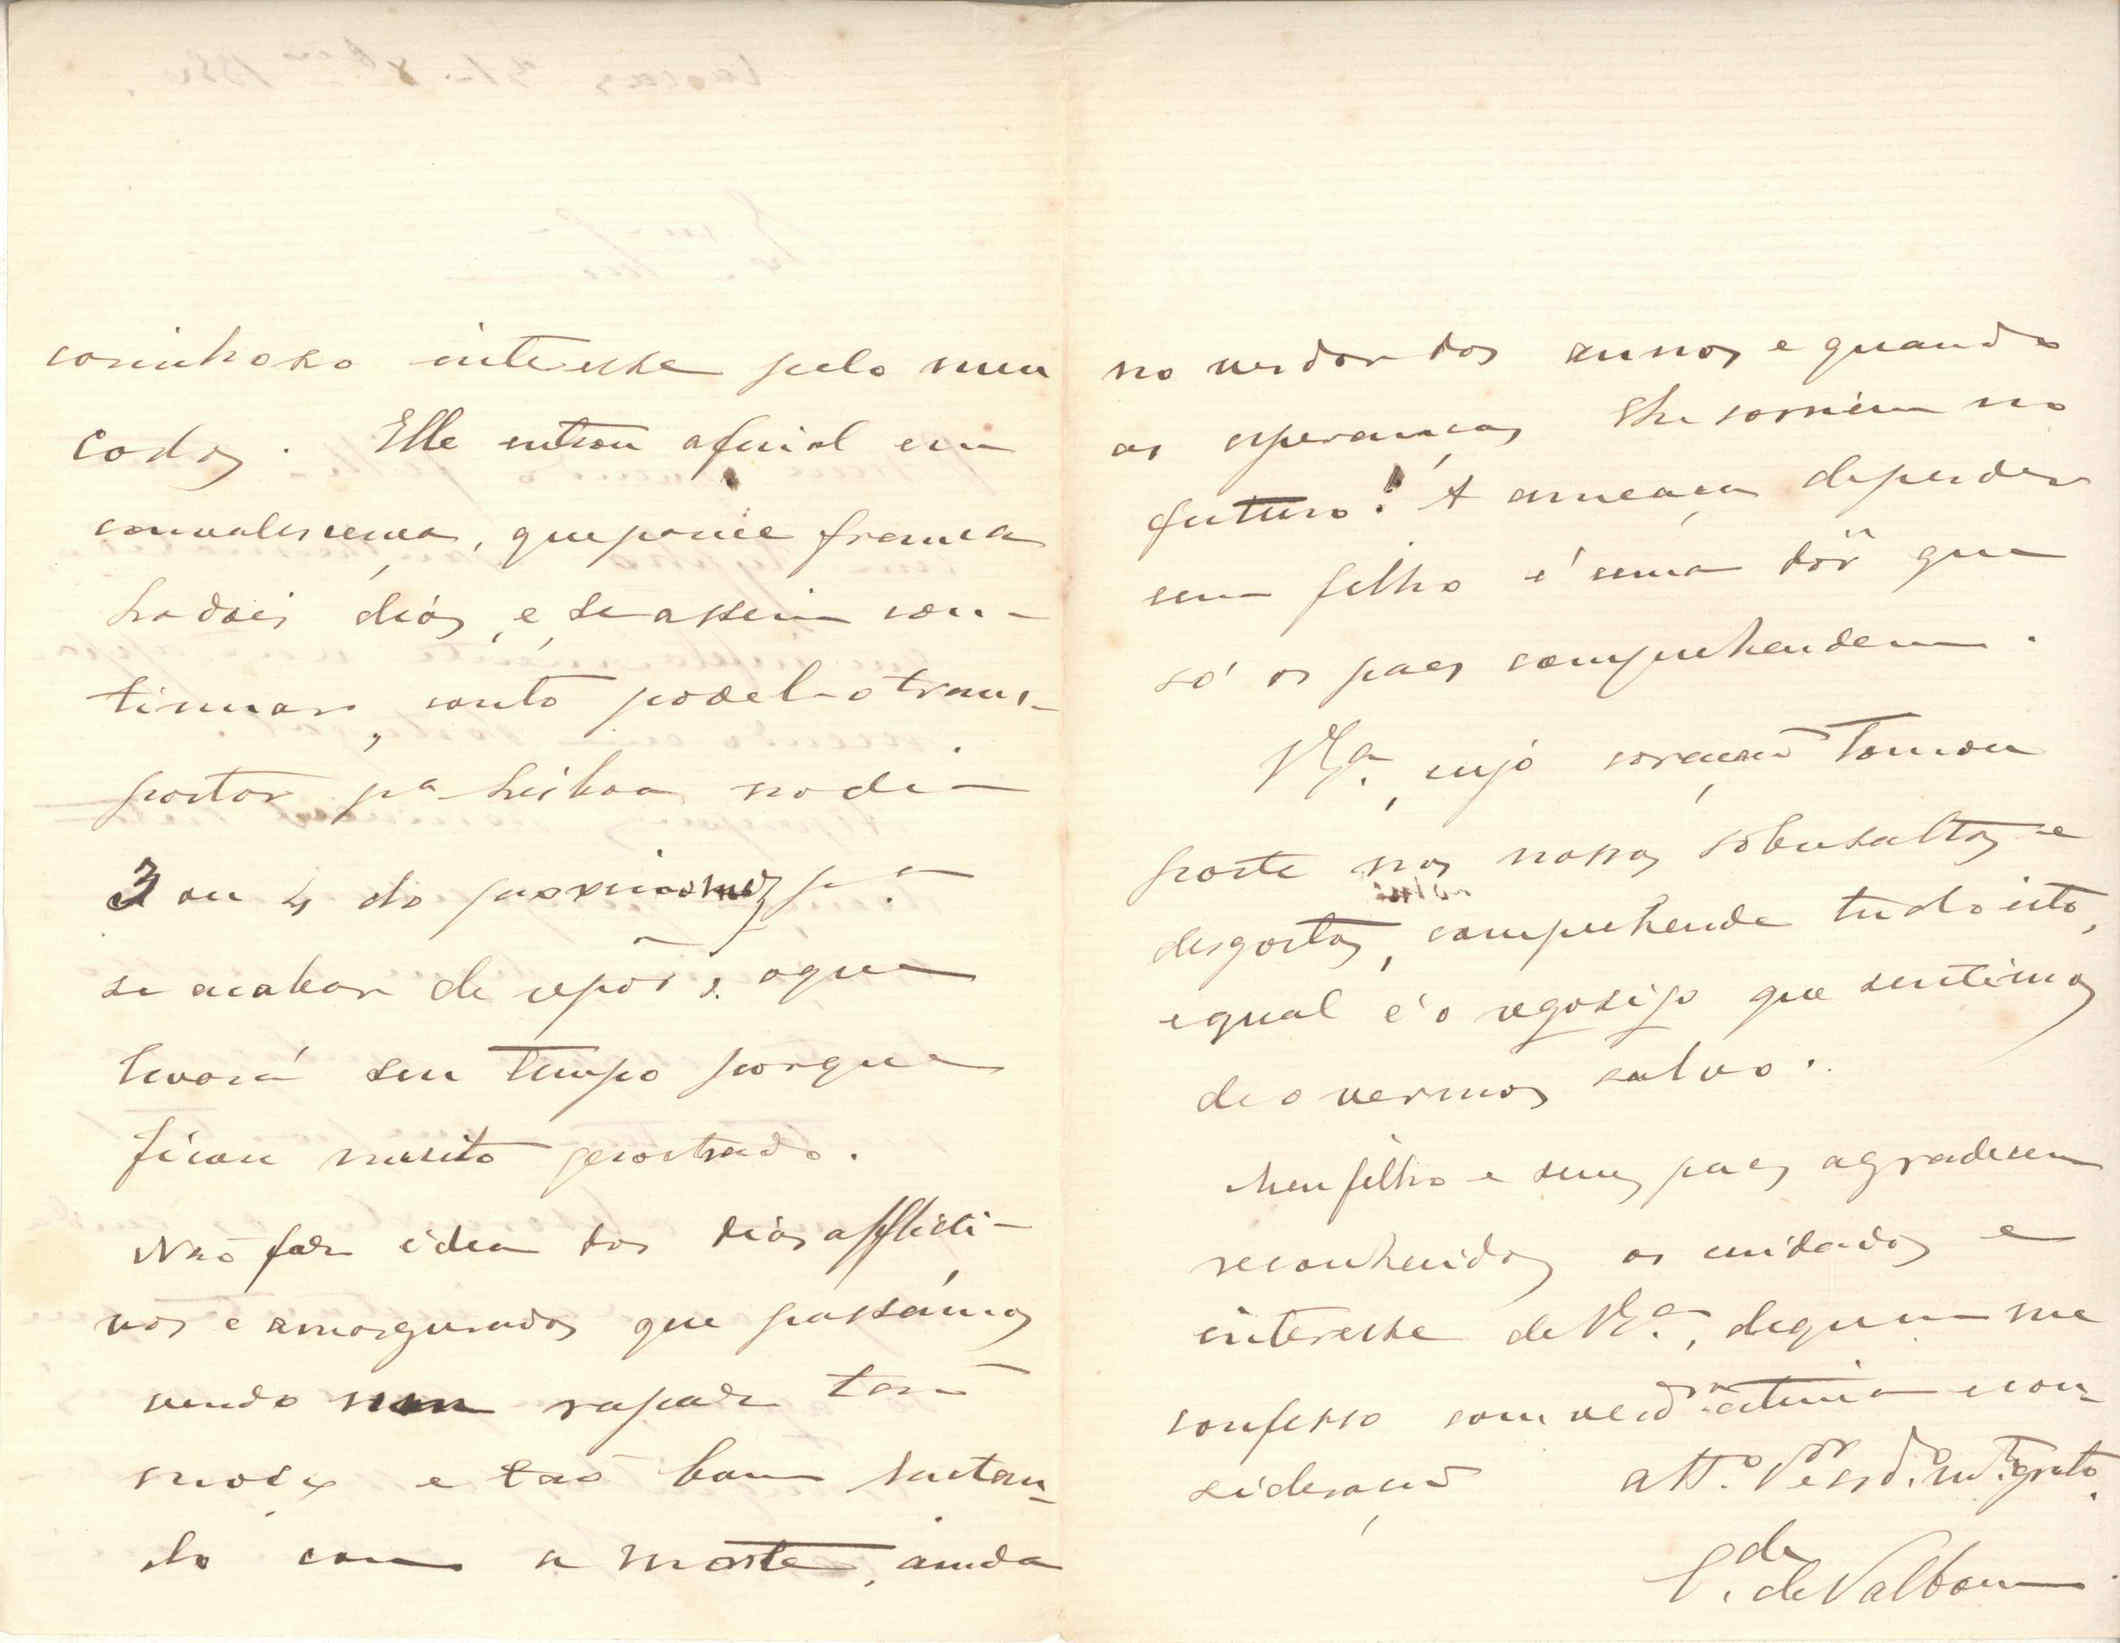 carinhoso interesse pelo meu
Carlos. Elle entrou afinal em
convalescença, que parece franca
ha dois dias, e, se assim con-
tinuar, conto podel-o trans-
portar pa Lisboa no dia
3 ou 4 do proximo mez, pa
se acabar de repôr, o que
levará seu tempo porque
ficou muito prostrado.
Não faz idea dos dias afflicti-
vos e amargurados que passámos
vendo um rapaz tão
e tão bom luctan-
do com a morte, ainda
no verdor dos annos e quando
as esperanças lhe sorriem no
futuro! A ameaça de perder
um filho é uma dôr que
só os paes comprehendem.
V. Ex.a, cujo coração tomou
parte nos nossos sobresaltos e
desgostos, comprehende tudo isto,
egual é o regosijo que sentimos
de o vermos salvo.
Meu filho e seus paes agradecem
reconhecidos os cuidados e
interesse de V. Ex.a, de quem me
confesso com verd.ra estima e con-
sideração att.o V.or e mt. grato.
C.de de Valbom